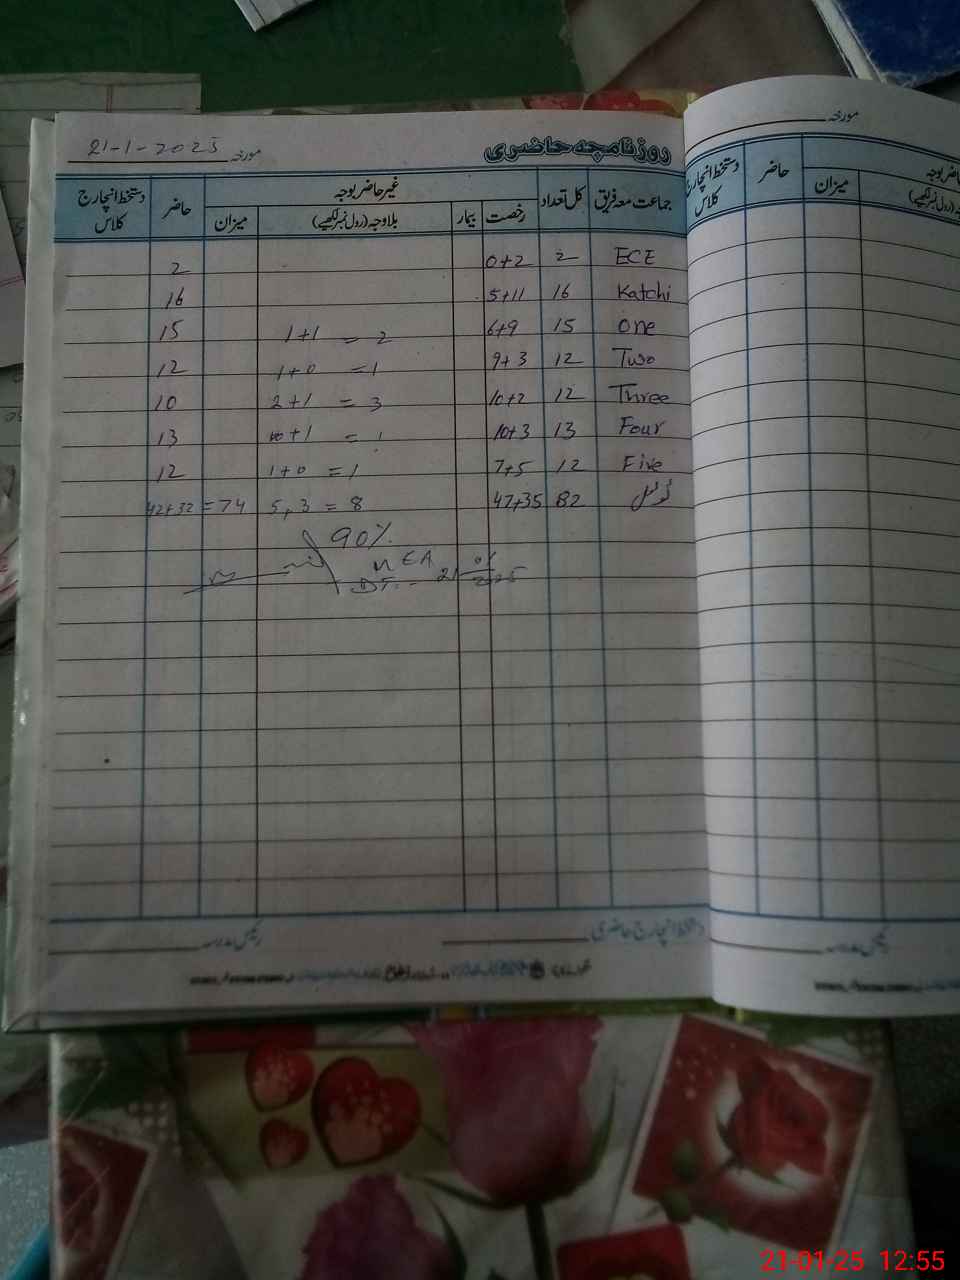 روزنامچہ حاضری
مورخہ 21-1-2025
جماعت معہ فریق کل تعداد غیر حاضر بوجہ حاضر دستخط انچارج کلاس
رخصت بیمار بلاوجہ (رول نمبر لکھیے) میزان
ECE 2 0+2 2
Katchi 16 5+11 16
One 15 6+9 1+1 = 2 15
Two 12 9+3 1+0 = 1 12
Three 12 10+2 2+1 = 3 10
Four 13 10+3 +1 = 1 13
Five 12 7+5 1+0 = 1 12
ٹوٹل 82 47+35 5, 3 = 8 42+32 = 74
90%
MEA
DT:- 21
دستخط انچارج حاضری
رئیس مدرسہ
مورخہ
حاضر بوجہ
میزان
حاضر
دستخط انچارج کلاس
رئیس مدرسہ
21-01-25 12:55